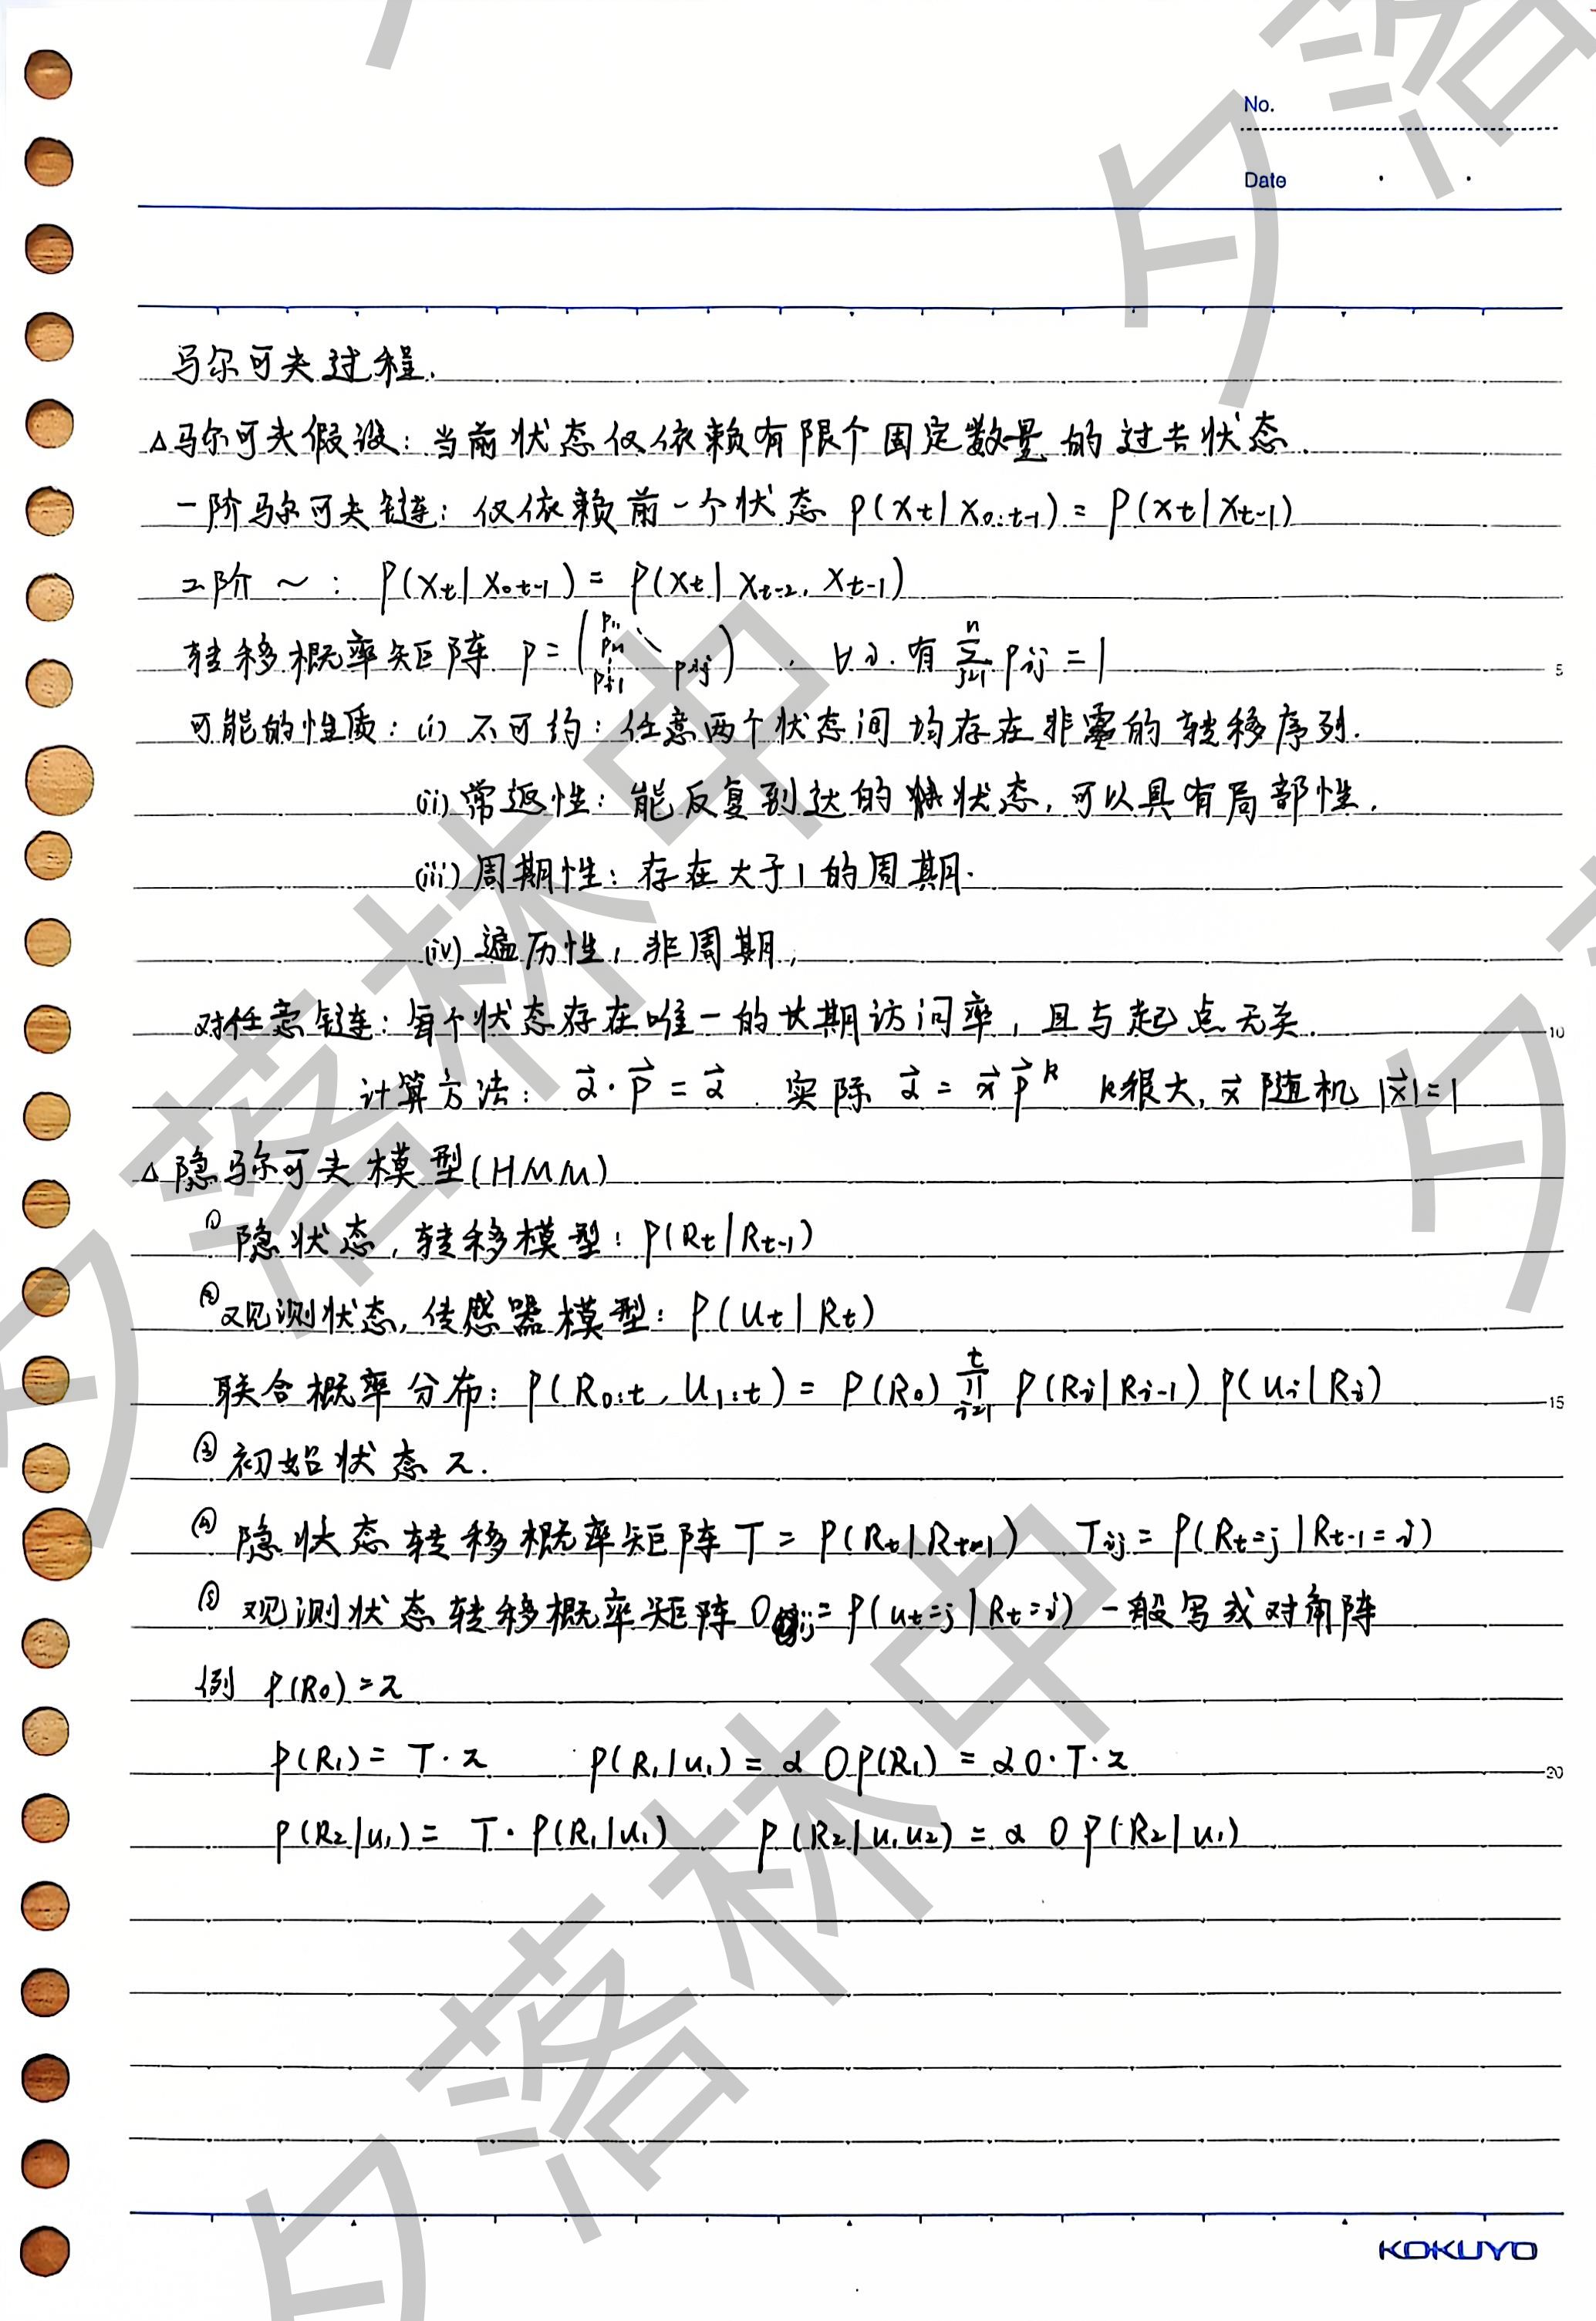 No.
Date
马尔可夫过程.
△马尔可夫假设: 当前状态仅依赖有限个固定数量的过去状态.
一阶马尔可夫链: 仅依赖前一个状态 P(Xt|X0:t-1) = P(Xt|Xt-1)
二阶 ~ : P(Xt|X0:t-1) = P(Xt|Xt-2, Xt-1)
转移概率矩阵 P = ( pij ) . ∀i. 有 Σ(j=1, n) pij = 1
可能的性质: (i) 不可约: 任意两个状态间均存在非零的转移序列.
(ii) 常返性: 能反复到达的状态, 可以具有局部性.
(iii) 周期性: 存在大于1的周期.
(iv) 遍历性, 非周期,
对任意链: 每个状态存在唯一的长期访问率, 且与起点无关.
计算方法: α⃗·P⃗ = α⃗ . 实际 α⃗ = x⃗ P⃗^k k很大, x⃗ 随机 |x⃗|=1
△ 隐马尔可夫模型(HMM)
① 隐状态, 转移模型: P(Rt|Rt-1)
② 观测状态, 传感器模型: P(Ut|Rt)
联合概率分布: P(R0:t, U1:t) = P(R0) ∏(i=1, t) P(Ri|Ri-1) P(Ui|Ri)
③ 初始状态 π.
④ 隐状态转移概率矩阵 T = P(Rt|Rt-1) Tij = P(Rt=j|Rt-1=i)
⑤ 观测状态转移概率矩阵 Oij = P(ut=j|Rt=i) 一般写成对角阵
例 P(R0) = π
P(R1) = T·π P(R1|u1) = α O P(R1) = α O·T·π
P(R2|u1) = T·P(R1|u1) P(R2|u1,u2) = α O P(R2|u1)
5
10
15
20
KOKUYO
夕落林中
夕落林中
夕落
夕